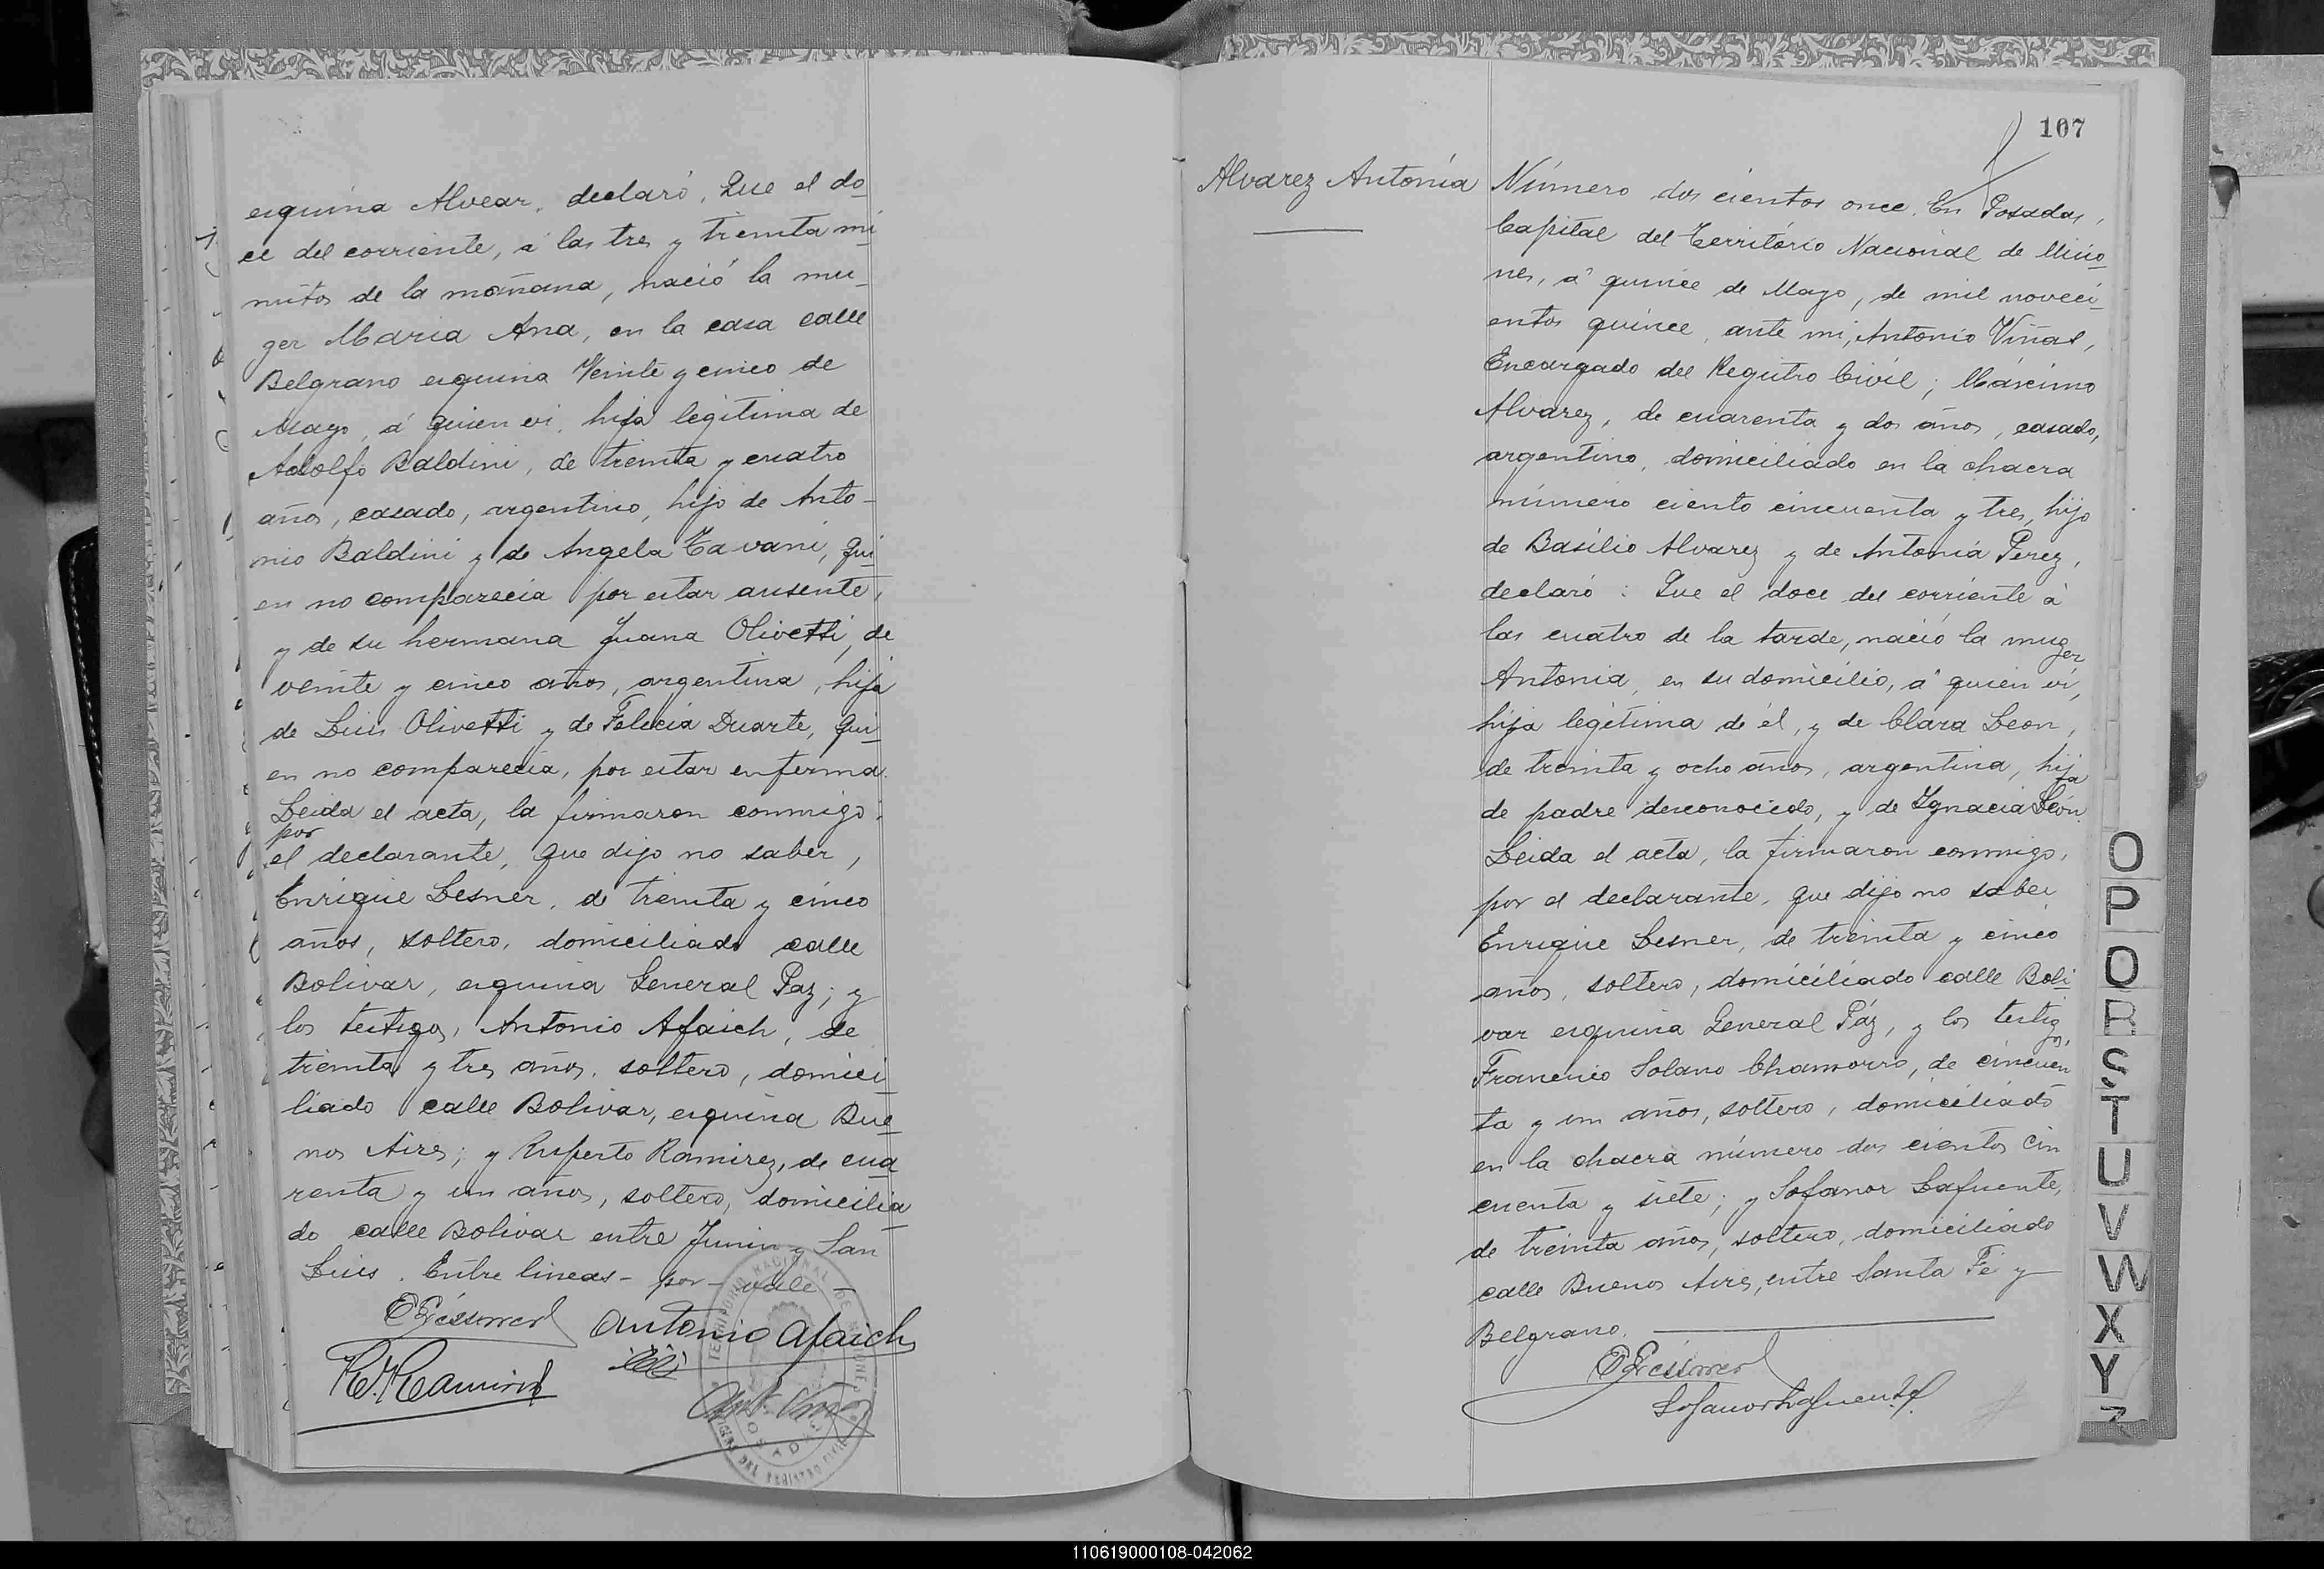 esquina Alvear, declaró, Que el do
ce del corriente, á las tres y treinta mi
nutos de la mañana, nació la mu-
ger Maria Ana, en la casa calle
Belgrano esquina Veinte y cinco de
Mayo, á quien vi, hija legitima de
Adolfo Baldini, de treinta y cuatro
años, casado, argentino, hijo de Anto-
nio Baldini y de Angela Tavani, qui
en no comparecia por estar ausente,
y de su hermana Juana Olivetti, de
veinte y cinco años, argentina, hija
de Luis Olivetti y de Felicia Duarte, qui
en no comparecia, por estar enferma.
Leida el acta, la firmaron conmigo:
por
el declarante, que dijo no saber,
Enrique Lesner, de treinta y cinco
años, soltero, domiciliado calle
Bolivar, esquina General Paz; y
los testigos, Antonio Afaich, de
treinta y tres años, soltero, domici
liado calle Bolivar, esquina Bue
nos Aires; y Ruperto Ramirez, de cua
renta y un años, soltero, domicilia
do calle Bolivar entre Junin y San
Luis. Entre lineas - por - vale -
Antonio Afaich
R. Ramirez
Ant. Viñas
TERRITORIO NACIONAL DE MISIONES
OFICINA DEL REGISTRO CIVIL
POSADAS
107
Alvarez Antonia
Número dos cientos once. En Posadas,
Capital del Território Nacional de Misio
nes, á quince de Mayo, de mil noveci-
entos quince, ante mi, Antonio Viñas,
Encargado del Registro Civil; Máximo
Alvarez, de cuarenta y dos años, casado,
argentino, domiciliado en la chacra
número ciento cincuenta y tres, hijo
de Basilio Alvarez y de Antonia Perez,
declaró: Que el doce del corriente á
las cuatro de la tarde, nació la muger
Antonia, en su domicilio, á quien vi,
hija legitima de él, y de Clara Leon,
de treinta y ocho años, argentina, hija
de padre desconocido, y de Ygnacia León.
Leida el acta, la firmaron conmigo,
por el declarante, que dijo no saber
Enrique Lesner, de treinta y cinco
años, soltero, domiciliado calle Boli
var esquina General Páz, y los testigos,
Francisco Solano Chamorro, de cincuen
ta y un años, soltero, domiciliado
en la chacra número dos cientos cin
cuenta y siete; y Sofanor Lafuente,
de treinta años, soltero, domiciliado
calle Buenos Aires, entre Santa Fé y
Belgrano.
Sofanor Lafuente
O
P
Q
R
S
T
U
V
W
X
Y
Z
110619000108-042062